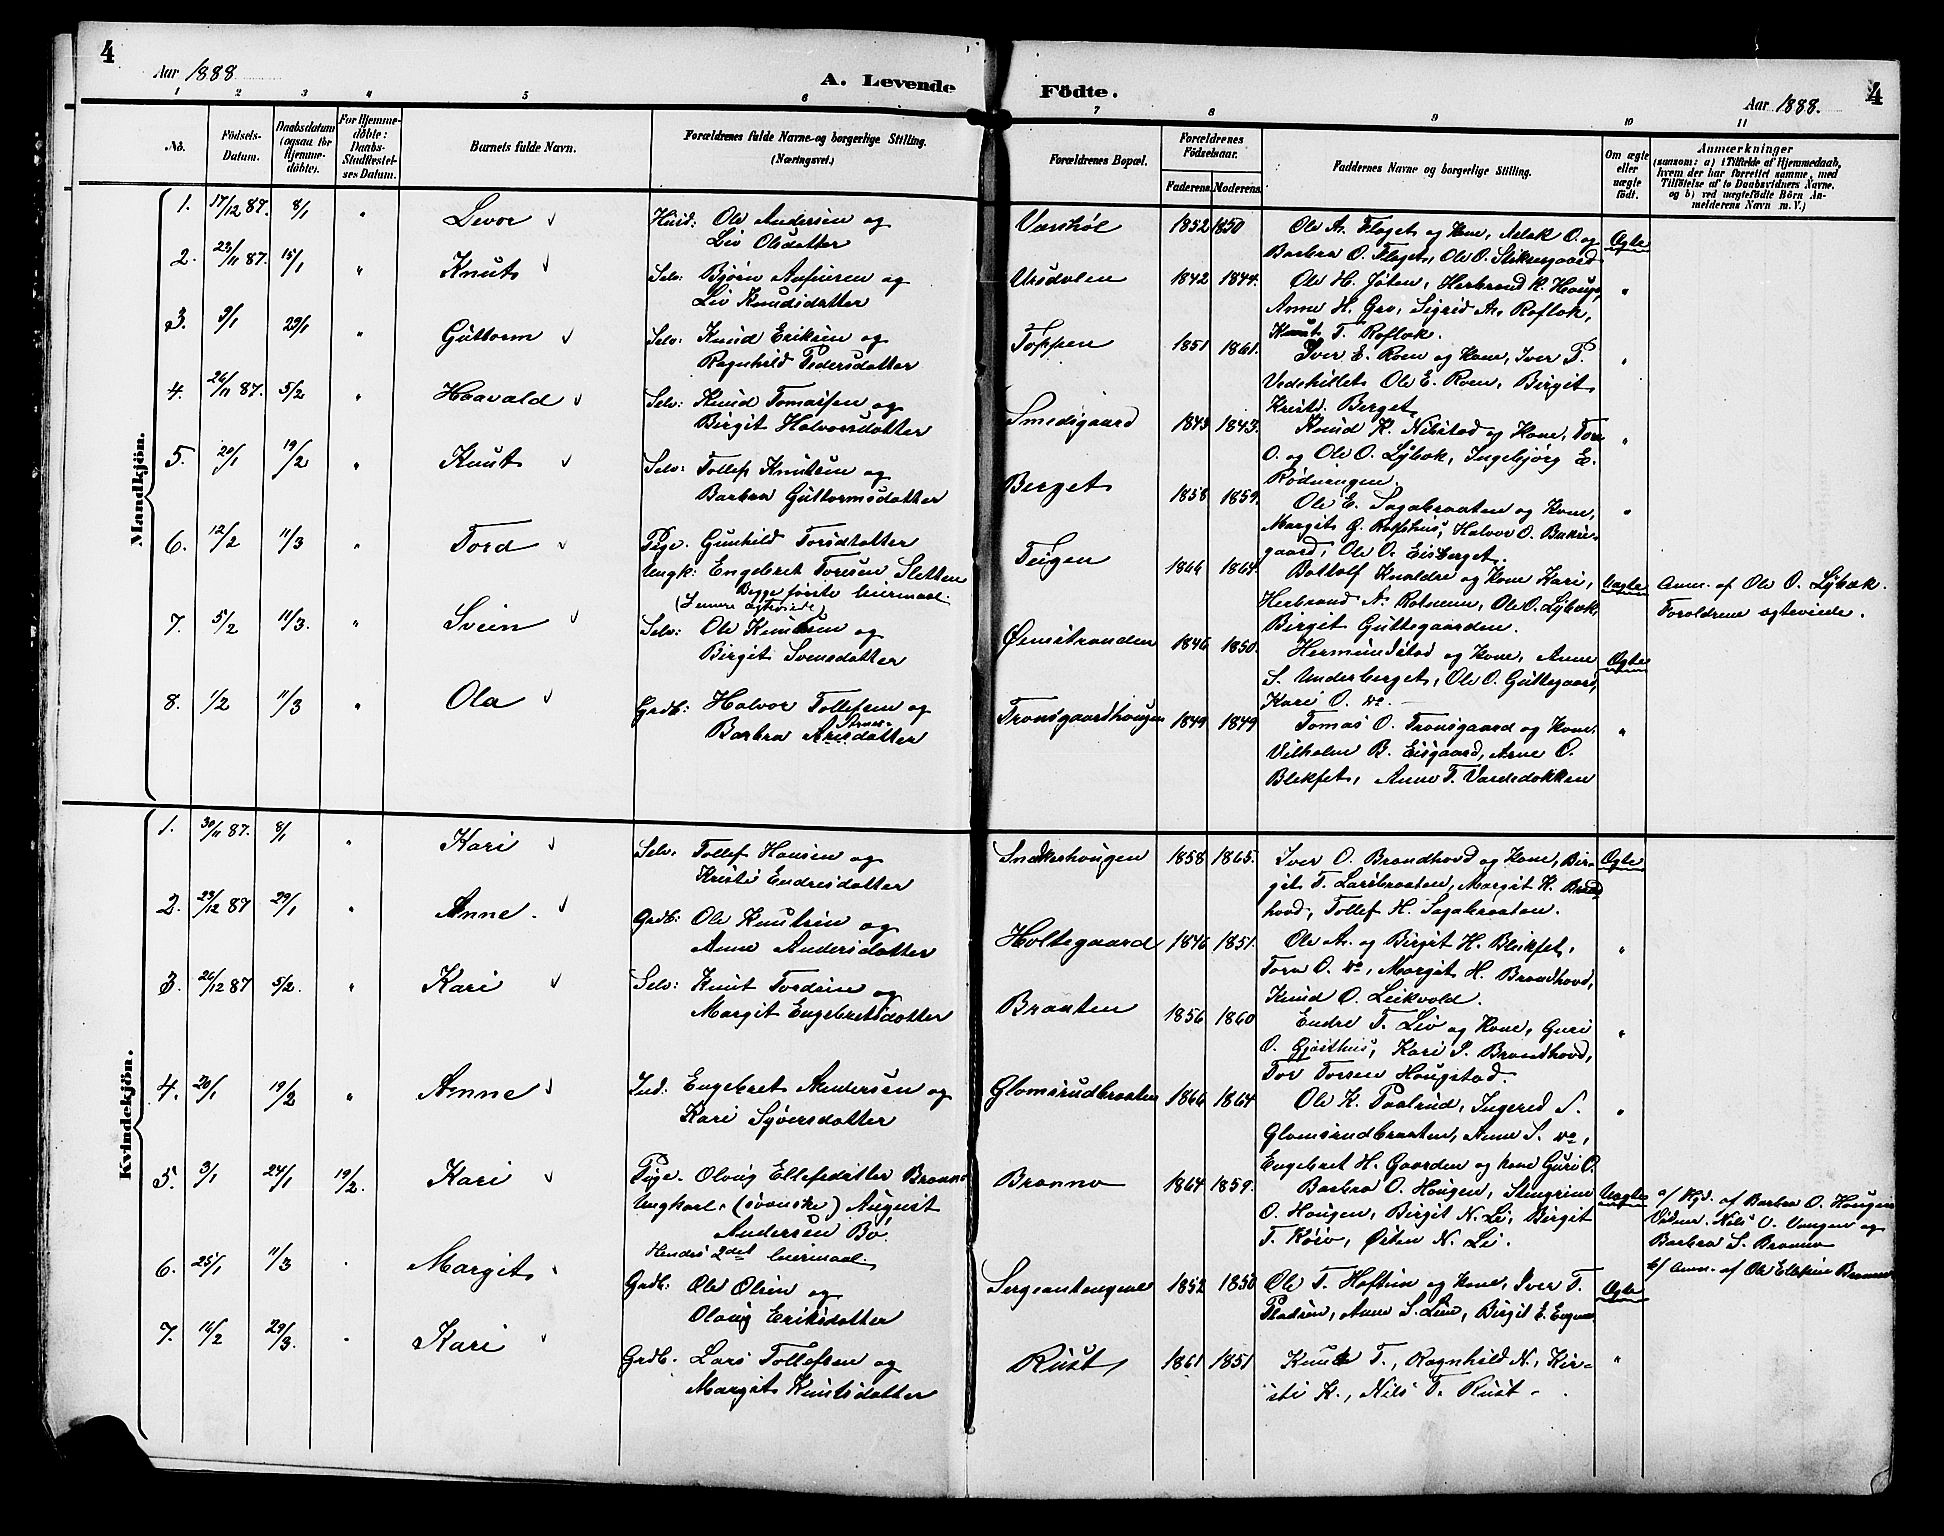 4
Aar 1888.
A. Levende
Födte.
Aar 1888.
4
1 2 3 4 5 6 7 8 9 10 11
No.
Födsels-Datum.
Daabsdatum (ogsaa for Hjemmedöbte).
For Hjemmedöbte: Daabs-Stadfæstelses Datum.
Barnets fulde Navn.
Forældrenes fulde Navne og borgerlige Stilling. (Næringsvei.)
Forældrenes Bopæl.
Forældrenes Födselsaar.
Faderens. Moderens.
Faddernes Navne og borgerlige Stilling.
Om ægte eller uægte födt.
Anmærkninger
(saasom: a) i Tilfælde af Hjemmedaab, hvem der har forrettet samme, med Tilföielse af to Daabsvidners Navne, og b) ved uægtefödte Börn Anmelderens Navn m. V.)
Mandkjön.
1. 17/12 87. 8/1 " Levor Husd: Ole Andersen og
Liv Olsdatter
1852 1850 Ole A. Flaget og Kone, Aslak O. og
Barbra O. Flaget, Ole O. Stikersgaard
Ægte
2. 23/11 87. 15/1 " Knut Selv: Bjørn og
Liv Knudsdatter
Ursdalen 1842 1844. Ole H. Jøten, Herbrand K. Haug,
Anne H. Gro, Sigrid A. Roflok,
Knut T. Roflok. "
3. 9/1 29/1 " Guttorm Selv: Knud Eriksen og
Ragnhild Pedersdatter
Toppen 1851 1861. Iver E. Roen og Kone, Iver T.
Vedehillet, Ole E. Roen, Birgit
Krist. Berget "
4. 26/11 87. 5/2 " Haavald Selv: Knud Tomassen og
Birgit Halvorsdatter
Smedsgaard 1843 1843. Knud K. Nibstad og Kone, Tore
O. og Ole O. Lybæk, Ingebjørg E.
Rødningen. "
5. 20/1 19/2 " Knut Selv: Tollef Knutsen og
Barbra Guttormsdatter
Berget 1858 1859. Ole E. Sagabraaten og Kone,
Margit G. Rolfshus, Halvor O. Bakke-
gaard, Ole O. Eisberget. "
6. 12/2 11/3 " Tord Pige. Gunhild Torsdatter
Ungk: Engebret Toresen Sletten
Begge første leiermaal.
(Senere ægteviede)
Teigen 1866 1864. Bottolf Knaldre og Kone Kari,
Herbrand N. Rotneim, Ole O. Lybæk,
Birgit Guttegaarden.
Uægte Anm. af Ole O. Lybæk.
Forældrene ægteviede.
7. 5/2 11/3. " Svein Selv: Ole Knutsen og
Birgit Svensdatter
Øenstranden 1846 1850. Hermundstad og Kone, Anne
S. Underberget, Ole O. Guttegaard,
Kari O. do. -
Ægte
8. 1/2 11/3 " Ola Grdb: Halvor Tollefsen og
Barbra Arnesdatter
Tronsgaardhougen 1849 1849 Tomas O. Tronsgaard og Kone,
Vilhelm B. Eisgaard, Arne O.
Blikfet, Anne T. Vardedokken "
Kvindekjön.
1. 30/11 87. 8/1 " Kari Selv. Tollef Hansen og
Kristi Endresdatter
Snekerhougen 1858 1865. Iver O. Brandhovd og Kone, Bir-
git T. Larsbraaten, Margit K. Brand
hovd, Tollef H. Sagabraaten.
Ægte
2. 23/12 87 29/1 " Anne. Grdb: Ole Knutsen og
Anne Andersdatter
Holtegaard 1846 1851. Ole A. og Birgit H. Blikfet,
Tora O. do, Margit H. Brandhovd,
Knud O. Leikvold. "
3. 26/12 87 5/2. " Kari Selv: Knut Tordsen og
Margit Engebretsdatter
Braaten 1856 1860 Endre T. Liv og Kone, Guri
O. Gjesthus, Kari S. Brandhovd,
Tor Torsen Hougstad. "
4. 20/1 19/2 " Anne Ind: Engebret Andersen og
Kari Syversdatter
Glomsrudbraaten 1866 1864 Ole K. Paalrud, Ingerid S.
Glomsrudbraaten, Anne S. do,
Engebret H. Gaarden og kone Guri O. "
5. 3/1 24/1 19/2. Kari Pige. Olaug Ellefsdatter Brænno
Ungkarl. (svenske) August
Andersen Bø.
Hendes 2det leiermaal.
Brænno 1864 1859. Barbra O. Hougen, Steingrim
O. Hougen, Birgit N. Li, Birgit
T. Køiv, Østen N. Li.
Uægte a/ Hjd. af Barbra O. Hougen
Vidner. Nils O. Vangen og
Barbra S. Brænno
b/ Anm. af Ole Ellefsen Brænno
6. 25/1 11/3 " Margit Grdb: Ole Olsen og
Olaug Eriksdatter
Sergeantengene 1852 1850 Ole T. Haftun og Kone, Iver T.
Pladsen, Anne S. Lein, Birgit E.
Ægte
7. 16/2 29/3. " Kari Grdb. Lars Tollefsen og
Margit Knutsdatter
Rust 1861 1851 Knut T., Ragnhild N., Kir-
sti K., Nils T. Rust - "